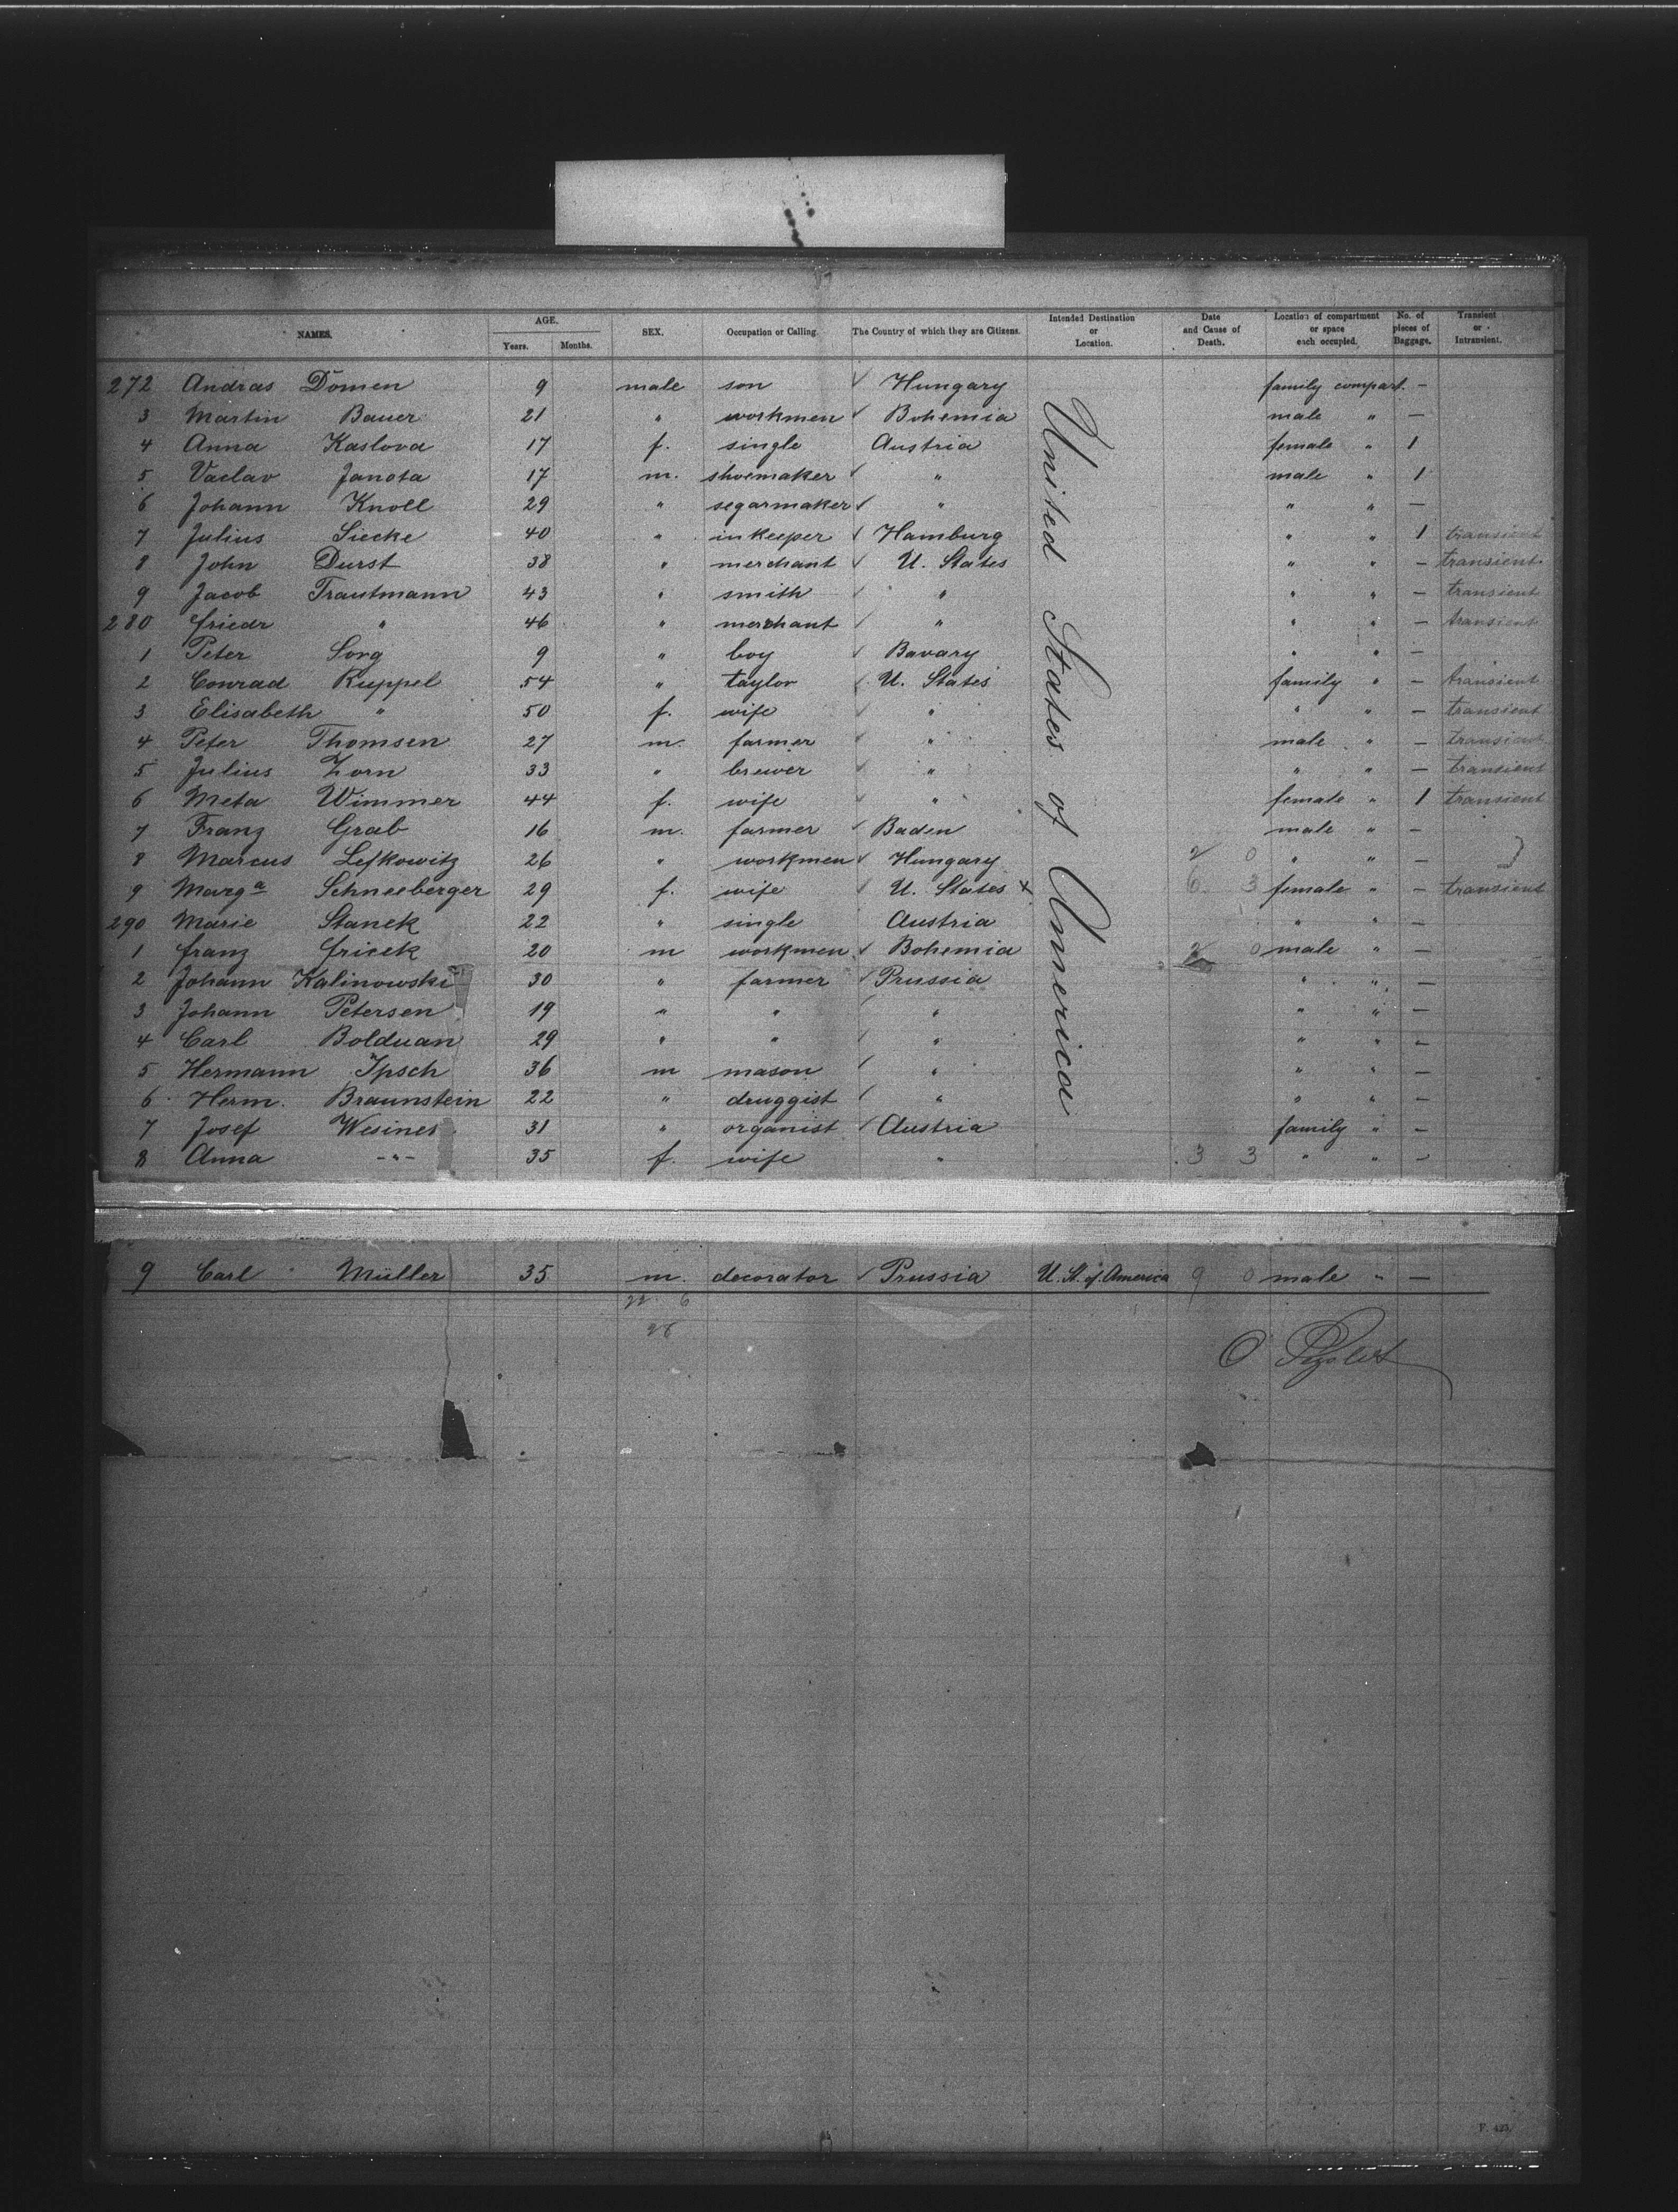 NAMES. AGE. Years. Months. SEX. Occupation or Calling. The Country of which they are Citizens. Intended Destination or Location. Date and Cause of Death. Location of compartment or space each occupied. No. of pieces of Baggage. Transient or Intransient.
272 Andras Dömen 9 male son ✓ Hungary family compart. —
3 Martin Bauer 21 " workmen ✓ Bohemia male " —
4 Anna Kaslova 17 f. single Austria female " 1
5 Vaclav Janota 17 m. shoemaker ✓ " male " 1
6 Johann Knoll 29 " segarmaker ✓ " " " —
7 Julius Siecke 40 " inkeeper ✓ Hamburg " " 1 transient
8 John Durst 38 " merchant ✓ U. States " " — transient
9 Jacob Trautmann 43 " smith ✓ " " " — transient
280 Friedr " 46 " merchant ✓ " " " — transient
1 Peter Sorg 9 " boy ✓ Bavary " " —
2 Conrad Ruppel 54 " taylor ✓ U. States family " — transient
3 Elisabeth " 50 f. wife ✓ " " " — transient
4 Peter Thomsen 27 m. farmer ✓ " male " — transient
5 Julius Zorn 33 " brewer ✓ " " " — transient
6 Meta Wimmer 44 f. wife ✓ " female " 1 transient
7 Franz Grab 16 m. farmer ✓ Baden male " —
8 Marcus Lefkowitz 26 " workmen ✓ Hungary 2 0 " " —
9 Marga Schneeberger 29 f. wife ✓ U. States + 6 3 female " — transient
290 Marie Stanek 22 " single Austria " " —
1 Franz Fricek 20 m workmen ✓ Bohemia 2 0 male " —
2 Johann Kalinowski 30 " farmer ✓ Prussia " " —
3 Johann Petersen 19 " " ✓ " " " —
4 Carl Bolduan 29 " " ✓ " " " —
5 Hermann Ipsch 36 m mason ✓ " " " —
6 Herm. Braunstein 22 " druggist ✓ " " " —
7 Josef Wesiner 31 " organist ✓ Austria family " —
8 Anna -"- 35 f. wife " 3 3 " " —
United States of America
9 Carl Müller 35 m. decorator ✓ Prussia U. St. of America 9 0 male " —
22 6
28
F. 425.